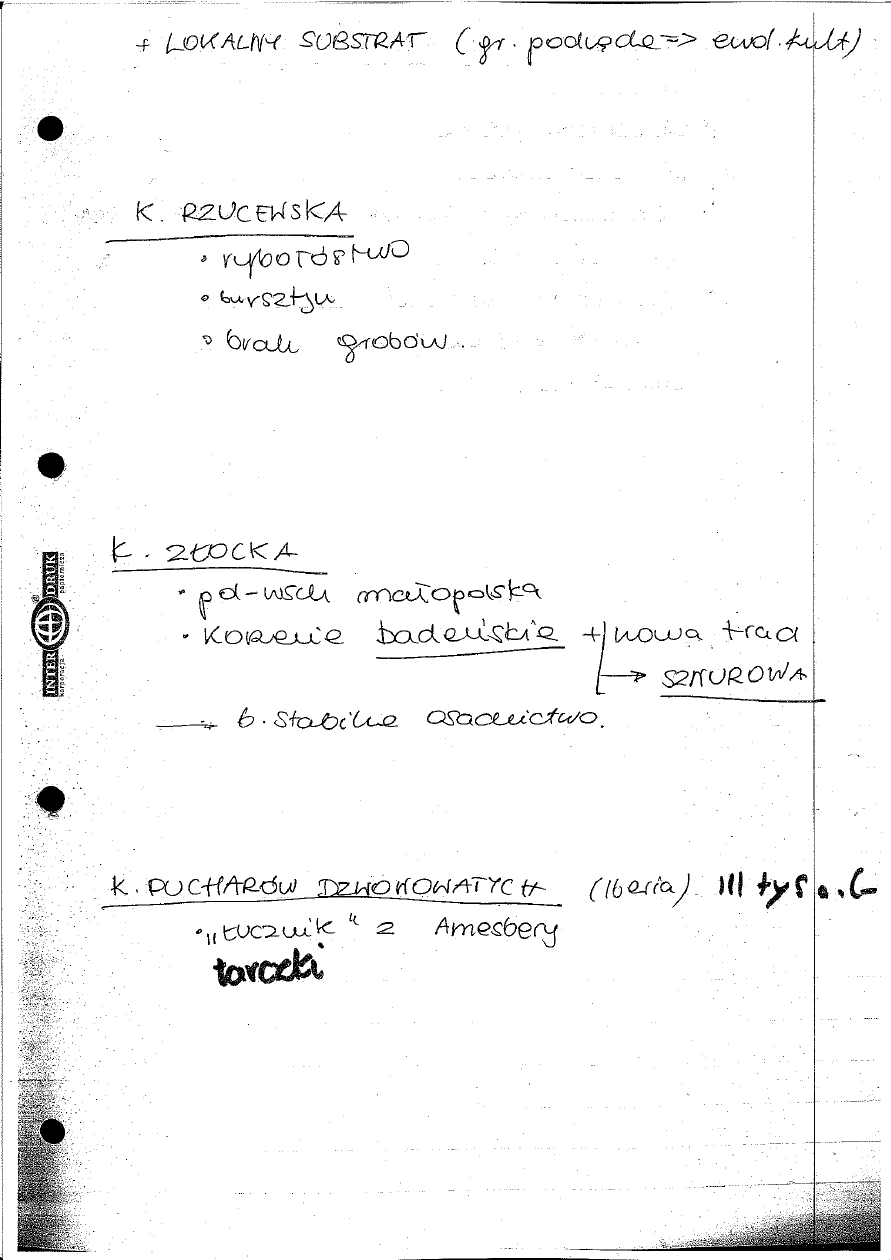 + LOKALNY SUBSTRAT (gr. podłęde => ewol. kult)
K. RZUCEWSKA
• rybołóstwo
• bursztyn
• brak grobów.
K. ZŁOCKA
• pd-wsch małopolska
• Korzenie badeńskie + nowa trad
→ SZNUROWA
→ b. stabilne osadnictwo.
INTER DRUK
korporacja papiernicza
K. PUCHARÓW DZWONOWATYCH (Iberia) III tys
• „Łucznik" z Amesbery
tarczki